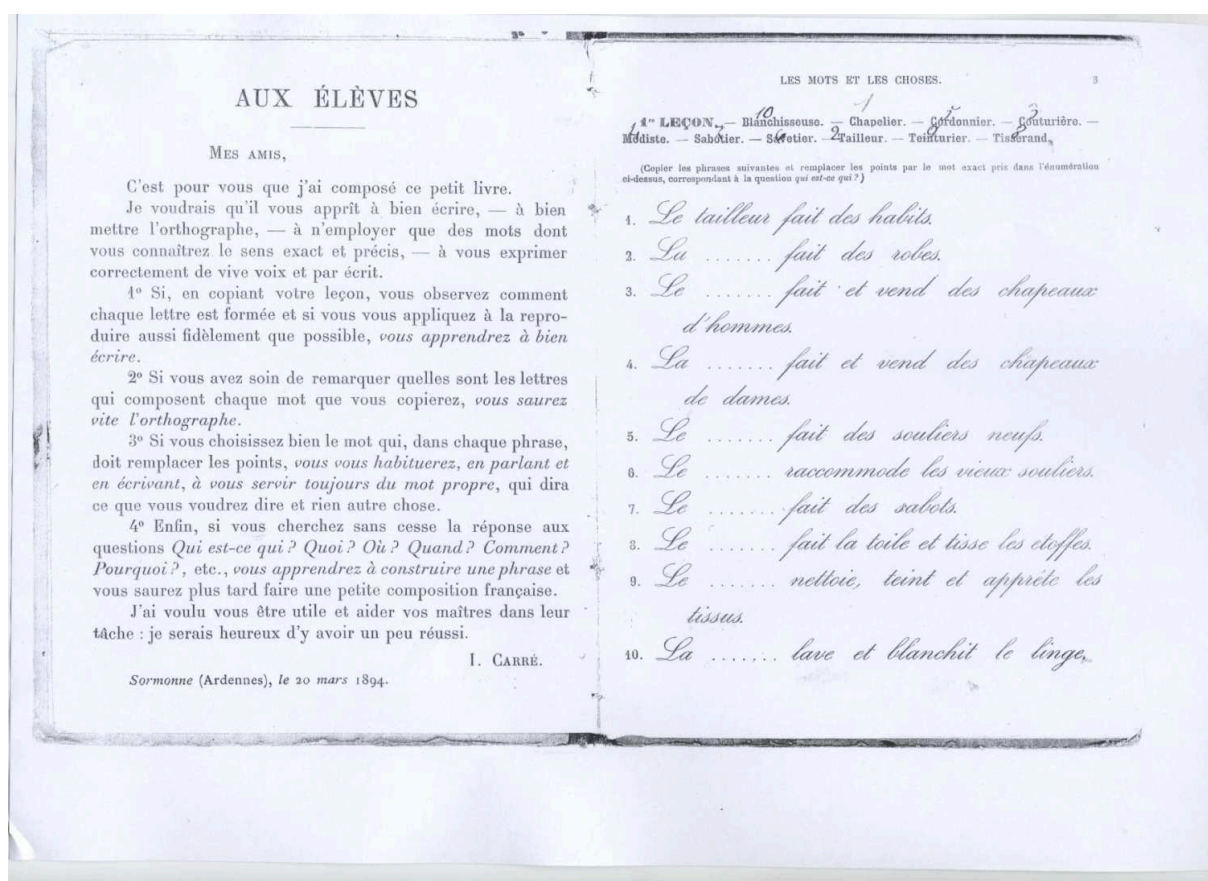 AUX ÉLÈVES
MES AMIS,
C'est pour vous que j'ai composé ce petit livre.
Je voudrais qu'il vous apprît à bien écrire, — à bien
mettre l'orthographe, — à n'employer que des mots dont
vous connaîtrez le sens exact et précis, — à vous exprimer
correctement de vive voix et par écrit.
1º Si, en copiant votre leçon, vous observez comment
chaque lettre est formée et si vous vous appliquez à la repro-
duire aussi fidèlement que possible, vous apprendrez à bien
écrire.
2º Si vous avez soin de remarquer quelles sont les lettres
qui composent chaque mot que vous copierez, vous saurez
vite l'orthographe.
3º Si vous choisissez bien le mot qui, dans chaque phrase,
doit remplacer les points, vous vous habituerez, en parlant et
en écrivant, à vous servir toujours du mot propre, qui dira
ce que vous voudrez dire et rien autre chose.
4º Enfin, si vous cherchez sans cesse la réponse aux
questions Qui est-ce qui ? Quoi ? Où ? Quand ? Comment ?
Pourquoi ?, etc., vous apprendrez à construire une phrase et
vous saurez plus tard faire une petite composition française.
J'ai voulu vous être utile et aider vos maîtres dans leur
tâche : je serais heureux d'y avoir un peu réussi.
I. CARRÉ.
Sormonne (Ardennes), le 20 mars 1894.
LES MOTS ET LES CHOSES. 3
1re LEÇON. — Blanchisseuse. — Chapelier. — Cordonnier. — Couturière. —
Modiste. — Sabotier. — Savetier. — Tailleur. — Teinturier. — Tisserand.
(Copier les phrases suivantes et remplacer les points par le mot exact pris dans l'énumération
ci-dessus, correspondant à la question qui est-ce qui ?)
1. Le tailleur fait des habits.
2. La ....... fait des robes.
3. Le ....... fait et vend des chapeaux
d'hommes.
4. La ....... fait et vend des chapeaux
de dames.
5. Le ....... fait des souliers neufs.
6. Le ....... raccommode les vieux souliers.
7. Le ....... fait des sabots.
8. Le ....... fait la toile et tisse les étoffes.
9. Le ....... nettoie, teint et apprête les
tissus.
10. La ....... lave et blanchit le linge.